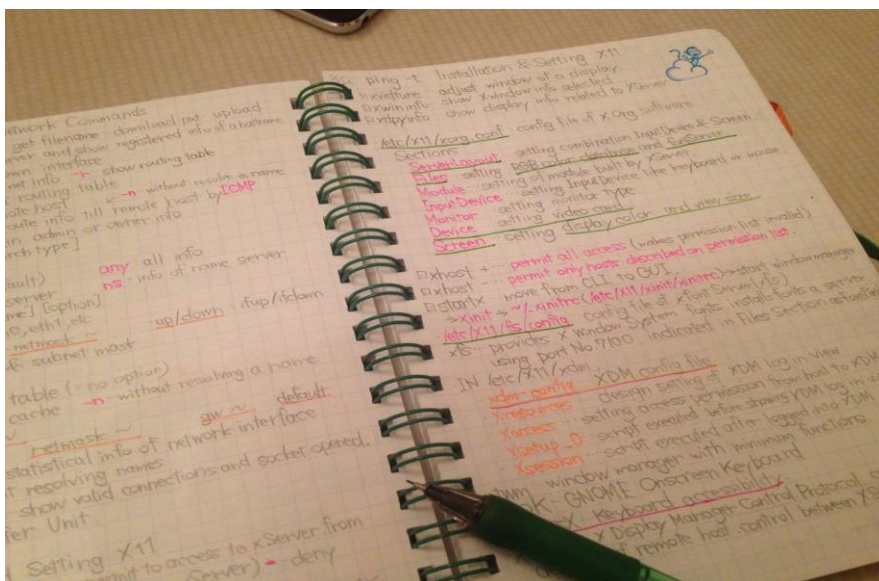 Network Commands
get filename download put upload
and show registered info of a hostname
own interface
info -r show routing table
routing table -n without resolve a name
remote host
route info till remote host by ICMP
admin or owner info
type]
any : all info
ns : info of name server
server
[option]
eth1, etc
netmask ~ up/down : ifup/ifdown
& subnet mast
table (- no option)
cache -n without resolving a name
netmask ~ gw ~ default
statistical info of network interface
resolving names
show valid connections and socket opened.
Unit
Setting X11
permit to access to xServer from
xServer) - deny
ping -t Installation & Setting X11
xvidtune adjust window of a display
xwininfo show xwindow info selected
xdpyinfo show display info related to xServer
/etc/X11/xorg.conf config file of X.Org software
Sections
ServerLayout setting combination InputDevice & Screen
Files setting RGB color database and FontServer
Module setting of module built by XServer
InputDevice setting InputDevice like keyboard or mouse
Monitor setting monitor type
Device setting video card
Screen setting display color and view size
xhost + permit all access (makes permission list invalid)
xhost - permit only hosts described on permission list.
startx move from CLI to GUI.
→ xinit → ~/.xinitrc (/etc/X11/xinit/xinitrc) → start window manager
/etc/X11/fs/config config file of xfont Server (xfs)
xfs provides X Window System fonts installs fonts a server
using port No.7100. indicated in Files Section
IN /etc/X11/xdm
xdm-config XDM config file
Xresources design setting of XDM log in view
Xaccess setting access permission from host to XDM
Xsetup_0 script executed before showing XDM log in
Xsession script executed after logged into XDM
twm window manager with minimum functions.
GNOME Onscreen Keyboard
Keyboard accessibility
X Display Manager Control Protocol
remote host control between